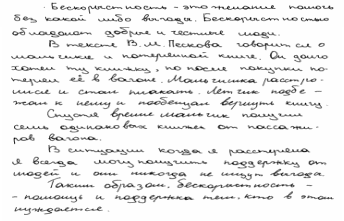 Бескорыстность - это желание помочь
без какой либо выгода. Бескорыстностью
обладают добрые и честные люди.
В тексте В.М. Пескова говорится о
мальчике и потерянной книге. Он долго
хотел ту книжку, но после покупки по-
терял её в вагоне. Мальчишка расстро-
ился и стал плакать. Летчик подбе-
жал к нему и пообещал вернуть книгу.
Спустя время мальчик получил
семь одинаковых книжек от пассажи-
ров вагона.
В ситуации когда я растеряна
я всегда могу получить поддержку от
людей и они никогда не ищут выгода.
Таким образом, бескорыстность -
- помощь и поддержка тем, кто в этом
нуждается.